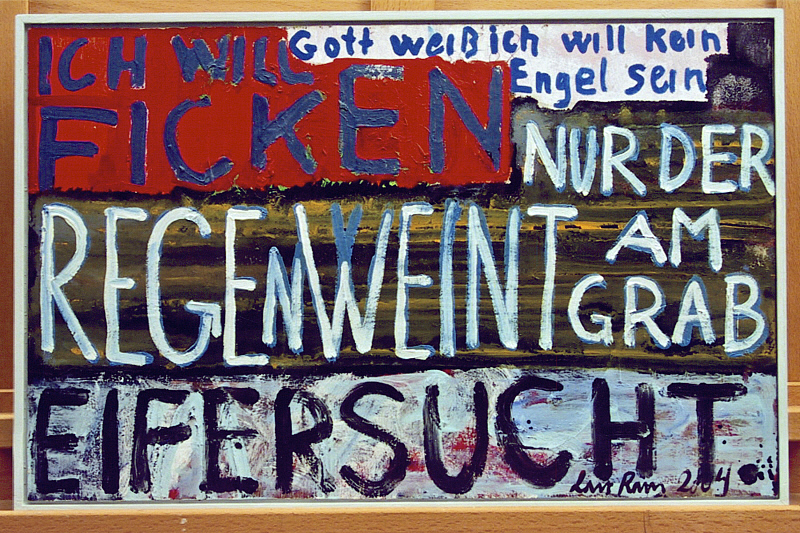 ICH WILL
FICKEN
Gott weiß ich will kein
Engel sein
NUR DER
REGEN WEINT
AM
GRAB
EIFERSUCHT
2004